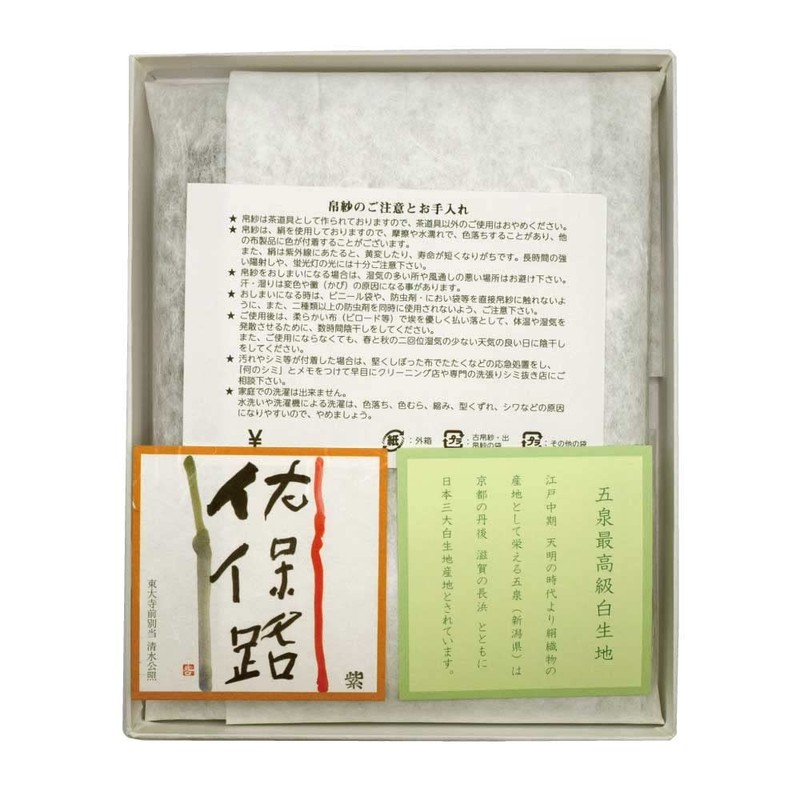 帛紗のご注意とお手入れ
★ 帛紗は茶道具として作られておりますので、茶道具以外のご使用はおやめください。
★ 帛紗は、絹を使用しておりますので、摩擦や水濡れで、色落ちすることがあり、他
の布製品に色が付着することがございます。
また、絹は紫外線にあたると、黄変したり、寿命が短くなりがちです。長時間の強
い陽射しや、蛍光灯の光には十分ご注意下さい。
★ 帛紗をおしまいになる場合は、湿気の多い所や風通しの悪い場所はお避け下さい。
汗・湿りは変色や黴（かび）の原因になる事があります。
★ おしまいになる時は、ビニール袋や、防虫剤・におい袋等を直接帛紗に触れないよ
うに、また、二種類以上の防虫剤を同時に使用されないよう、ご注意下さい。
★ ご使用後は、柔らかい布（ビロード等）で埃を優しく払い落として、体温や湿気を
発散させるために、数時間陰干しをしてください。
また、ご使用にならなくても、春と秋の二回位湿気の少ない天気の良い日に陰干し
をしてください。
★ 汚れやシミ等が付着した場合は、堅くしぼった布でたたくなどの応急処置をし、
「何のシミ」とメモをつけて早目にクリーニング店や専門の洗張りシミ抜き店にご
相談下さい。
★ 家庭での洗濯は出来ません。
水洗いや洗濯機による洗濯は、色落ち、色むら、縮み、型くずれ、シワなどの原因
になりやすいので、やめましょう。
¥
紙 ：外箱
プラ ：古帛紗・出
帛紗の袋
プラ ：その他の袋
佐保路
佐保路
紫
東大寺前別当 清水公照
五泉最高級白生地
江戸中期 天明の時代より絹織物の
産地として栄える五泉（新潟県）は
京都の丹後 滋賀の長浜 とともに
日本三大白生地産地とされています。